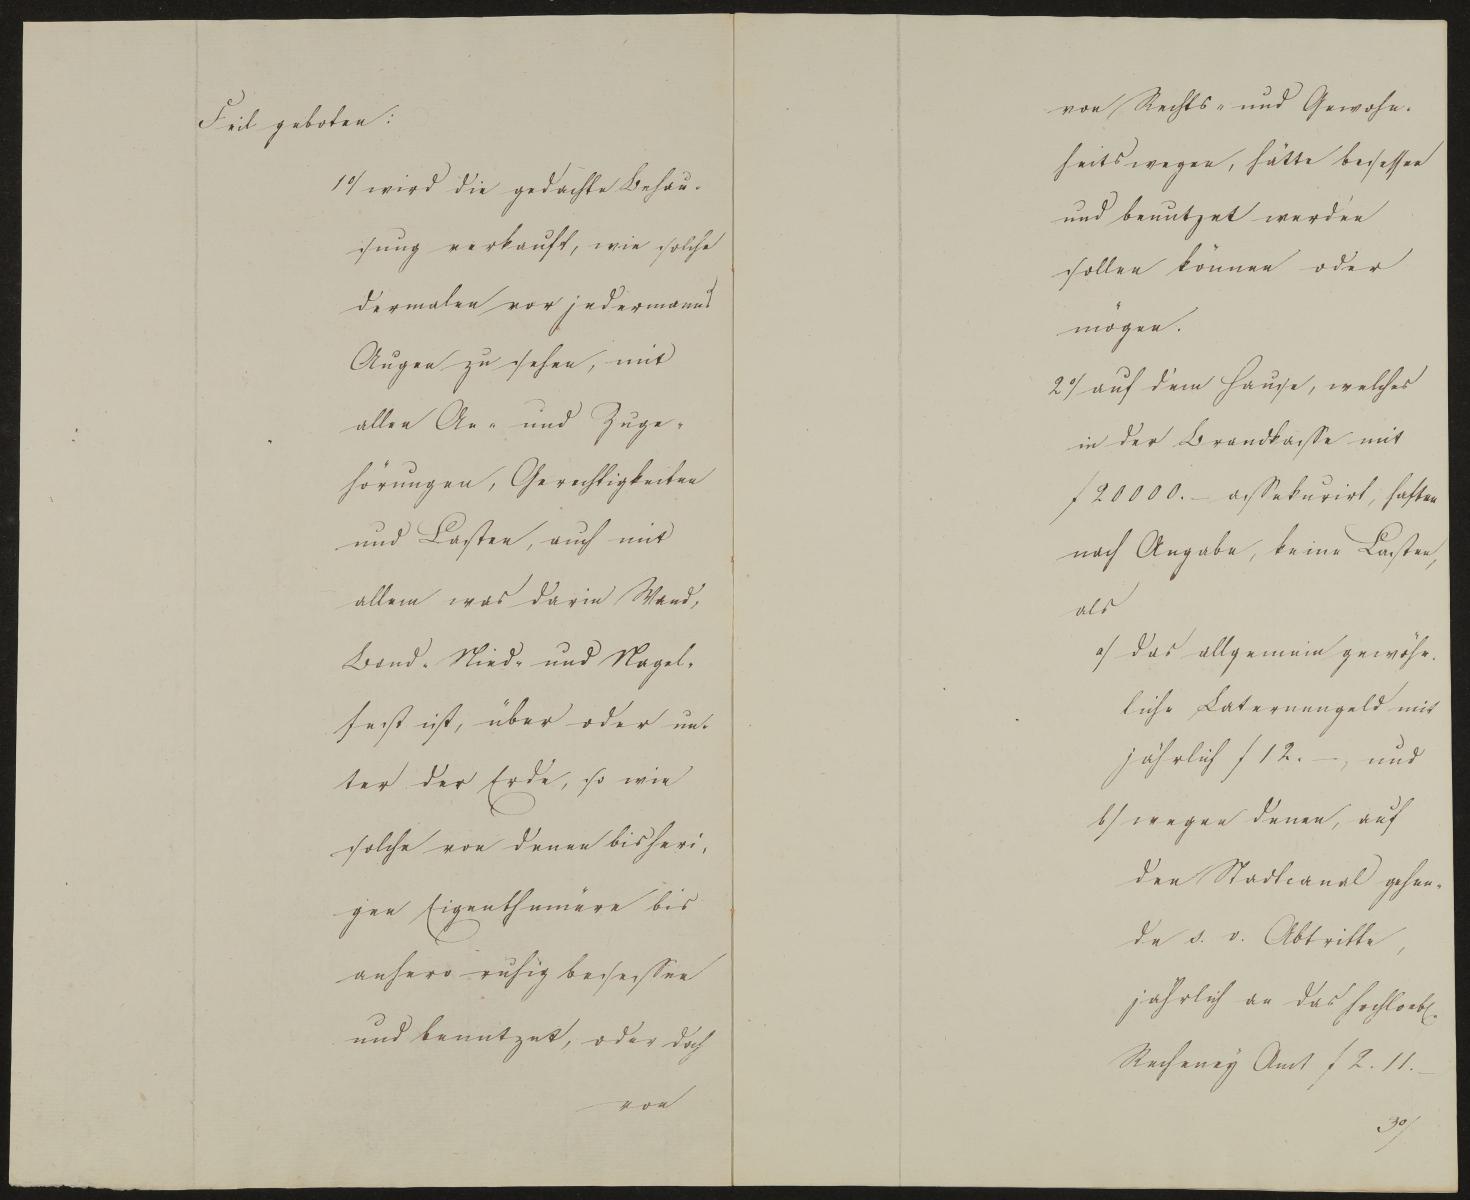 Feil geboten:
1o/ wird die gedachte Behau-
sung verkauft, wie solche
dermalen vor jedermanns
Augen zu sehen, mit
allen An- und Zuge-
hörungen, Gerechtigkeiten
und Lasten, auch mit
allem was darin Wand,
Band- Nied- und Nagel-
fest ist, über oder un-
ter der Erde, so wie
solche von denen bisheri-
gen Eigenthümere bis
anhero ruhig besessen
und benutzet, oder doch
von
von Rechts- und Gewohn-
heitswegen, hätte besessen
und benutzet werden
sollen können oder
mögen.
2o/ auf dem Hause, welches
in der Brandkasse mit
f 20000.- assekurirt, haften
nach Angabe, keine Lasten,
als
a/ das allgemein gewöhn-
liche Laternengeld mit
jährlich f 12.-, und
b/ wegen denen, auf
den Stadtcanal gehen-
de s. v. Abtritte,
jährlich an das hochloebl.
Recheney Amt f 2. 11.-
3o/